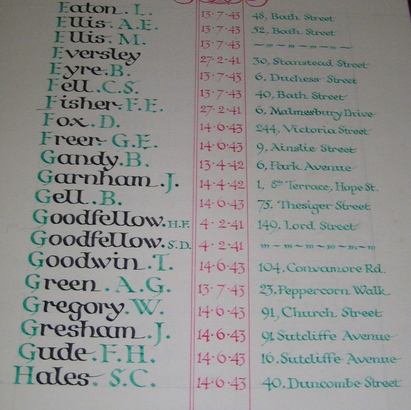 Eaton. L. 13·7·43 48, Bath Street
Ellis. A.E. 13·7·43 52, Bath Street
Ellis. M. 13·7·43 — " — " — " — " —
Eversley 27·2·41 30, Stanstead Street
Eyre. B. 13·7·43 6, Duchess Street
Fell. C.S. 13·7·43 40, Bath Street
Fisher. F.E. 27·2·41 6, Malmesbury Drive
Fox. D. 14·6·43 244, Victoria Street
Freer. G.E. 14·6·43 9, Ainslie Street
Gandy. B. 13·4·42 6, Park Avenue
Garnham. J. 14·4·42 1, 8th Terrace, Hope St.
Gell. B. 14·6·43 75. Thesiger Street
Goodfellow. H.F. 4·2·41 149. Lord Street
Goodfellow. S.D. 4·2·41 " — " — " — " — "
Goodwin. T. 14·6·43 104. Convamore Rd.
Green. A.G. 13·7·43 23. Peppercorn Walk
Gregory. W. 14·6·43 91, Church Street
Gresham. J. 14·6·43 91 Sutcliffe Avenue
Gude. F.H. 14·6·43 16. Sutcliffe Avenue
Hales. S.C. 14·6·43 40. Duncombe Street